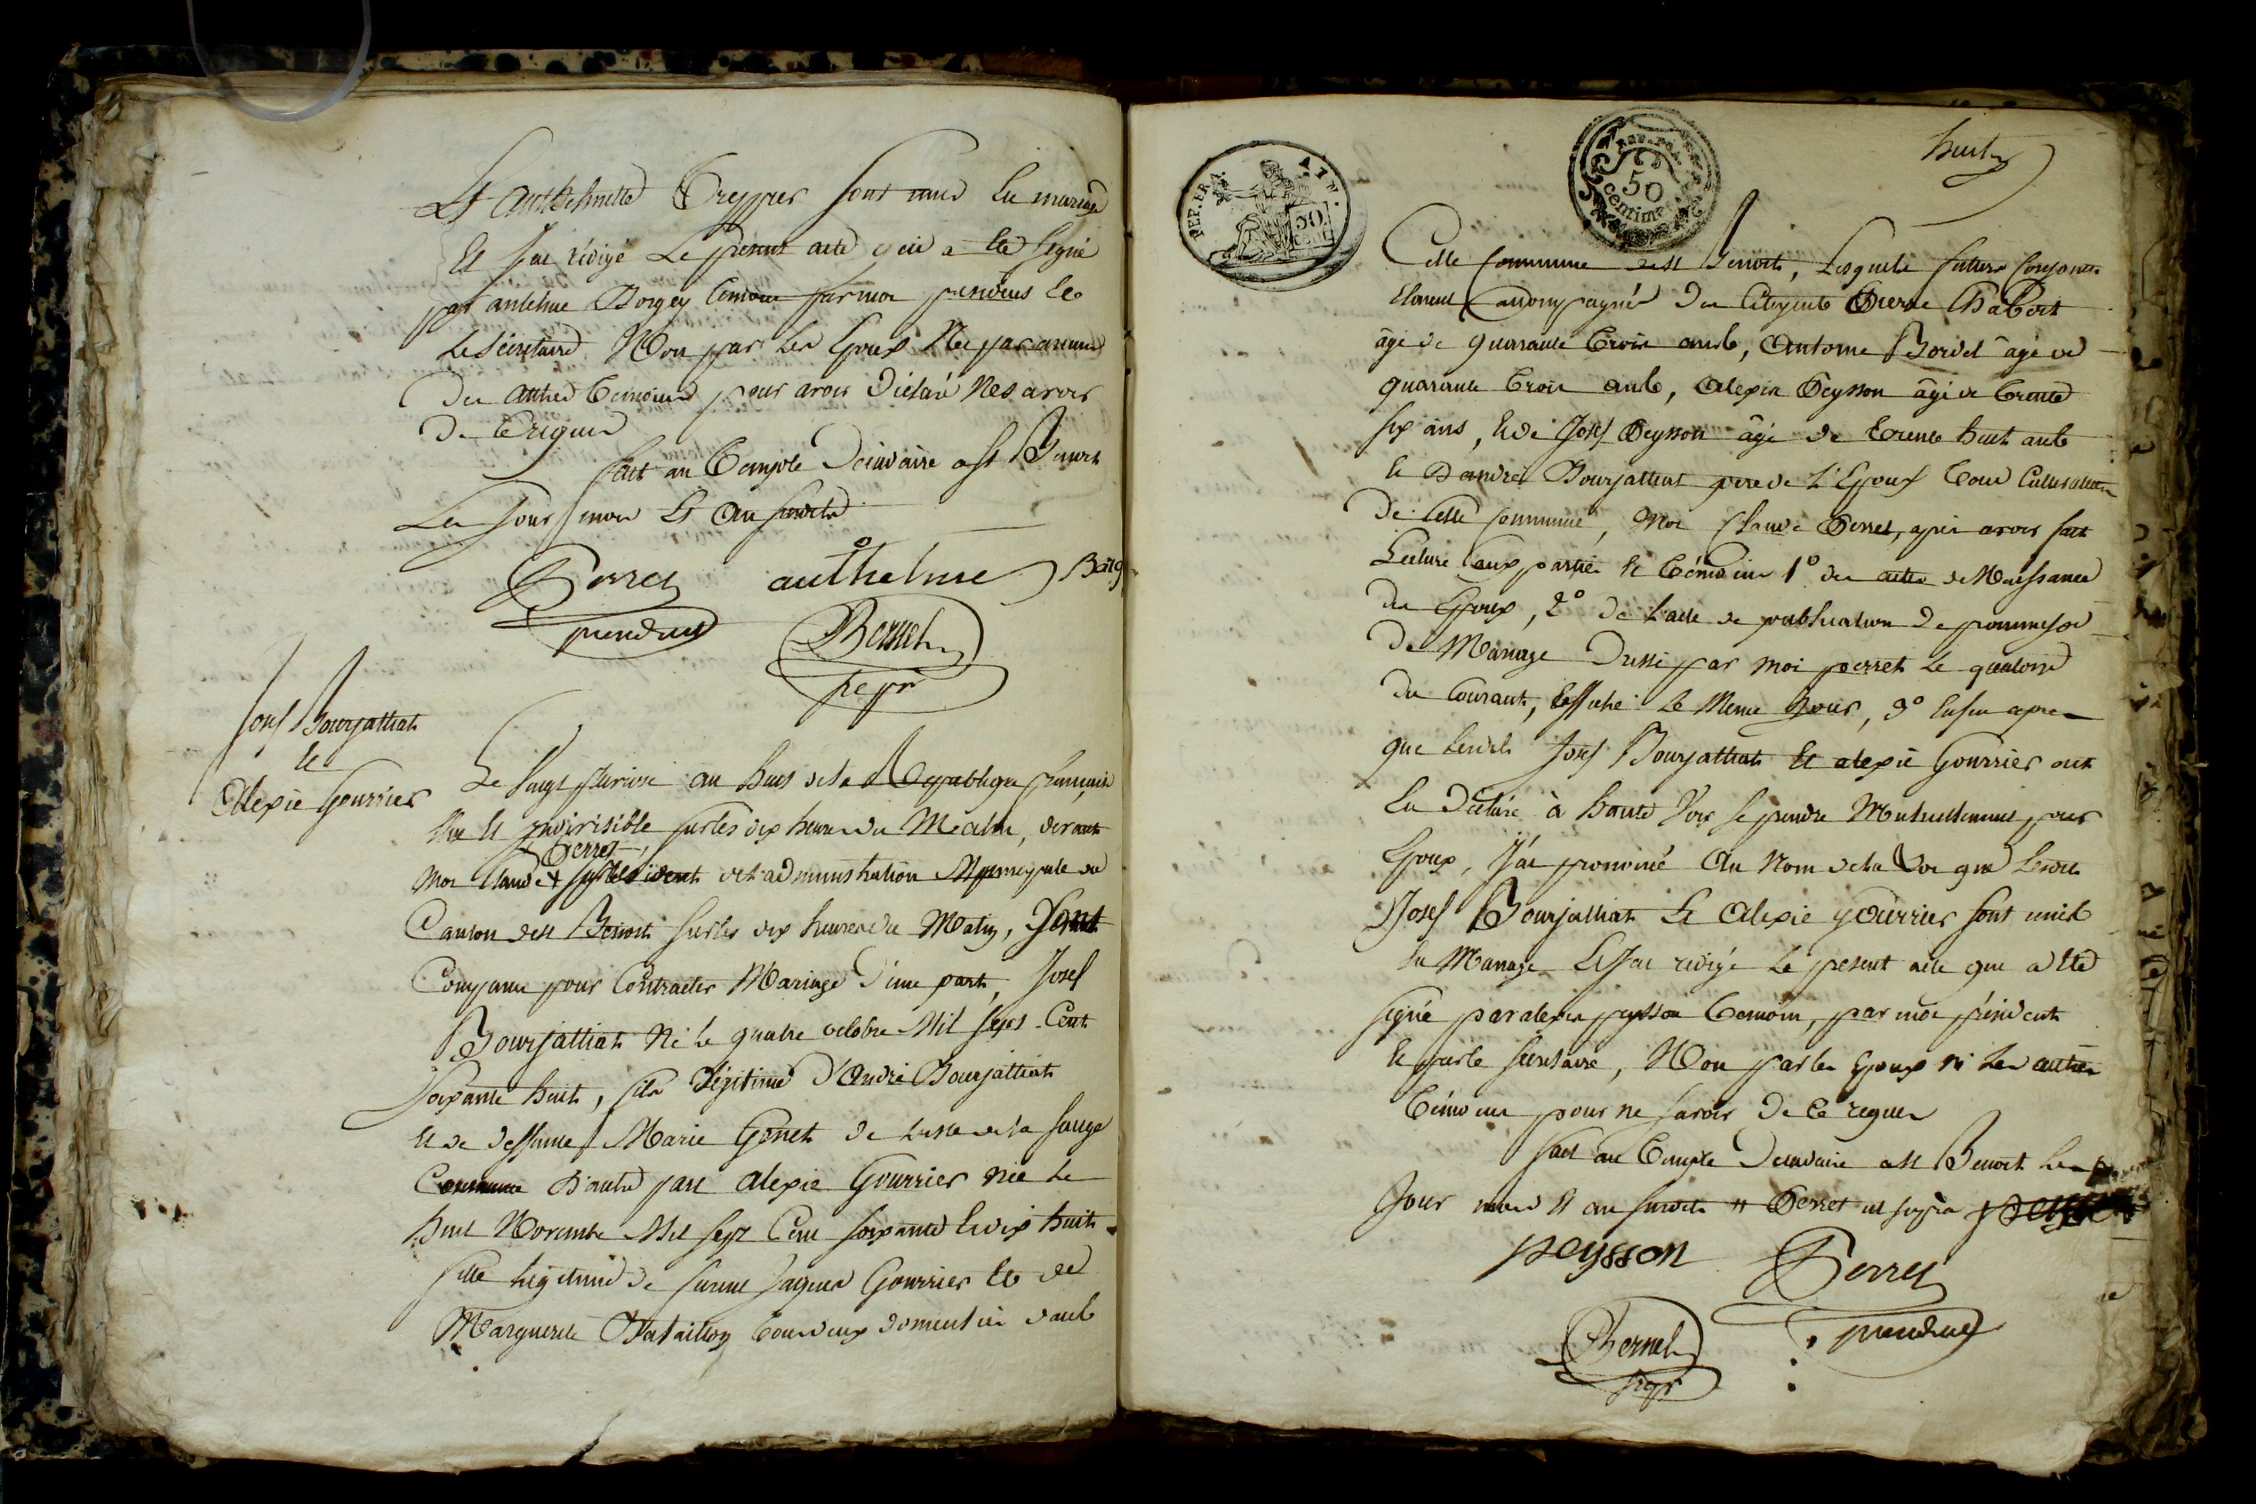 Et Anthelmette Treppier sont unis en mariage
Et j'ai rédigé Le présent acte qui a été signé
par antelme Borgey témoin par moi président et
le Secrétaire Non par les Epoux Ne par aucun
des autres temoins pour avoir Déclaré Ne savoir
De ce requis
fait au Temple Décadaire a St Benoit
Les Jour mois Et An susdits
Perret authelme Borg
president Bornet
segr
Josef Bourjaillat
et
Alexie Gourrier
Le vingt pluviose an huit de la Republique francaise
Une Et indivisible sur les dix heures du Matin, devant
Perret
moi Claude président de l'administration Municipale du
Canton de St Benoit sur les dix heures du Matin, sont
Comparus pour Contracter Mariage D'une part, Josef
Bourjaillat Né le quatre octobre Mil sept Cent
soixante huit, fils légitime D'André Bourjaillat
et de deffunte Marie Genet de
Commune D'autre part alexie Gourrier née le
huit Novembre Mil sept Cent soixante et dix huit
fille légitime de furent Jaques Gourrier et de
Marguerite Bataillon tous deux domiciliés dans
huit
REP. FRA.
50
CENT
REP. FRA.
50
centimes
Cette Commune de St Benoit, Lesquels futurs Conjoints
étaient accompagnés Des Citoyens Pierre Chabert
âgé de quarante trois ans, Antoine Bordel âgé de
quarante trois ans, Alexis Peysson âgé de trente
six ans, et de Josef Peysson âgé de trente huit ans
et D'andré Bourjaillat pere de L'Epoux tous Cultivateurs
De Cette Commune, Moi Claude Perret, après avoir fait
Lecture aux parties et témoins 1° des actes de Naissance
des Epoux, 2° de l'acte de publication de promesse
De Mariage Dressé par moi perret le quatorze
du Courant, et affiché Le Meme Jour, 3° Enfin apres
que lesdits Josef Bourjaillat et alexie Gourrier ont
eu Déclaré à haute Voix se prendre Mutuellement pour
Epoux, J'ai prononcé Au Nom de la Loi que lesdits
Josef Bourjaillat Et Alexie Gourrier sont unis
En Mariage Et J'ai redigé le present acte que a été
signé par alexis peysson temoin, par moi président
et par le secretaire, Non par les Epoux ni les autres
témoins pour ne savoir De ce requis
fait au Temple Decadaire a St Benoit les
Jour mois Et an susdits Perret
peysson Perret
president
Bornet
segr